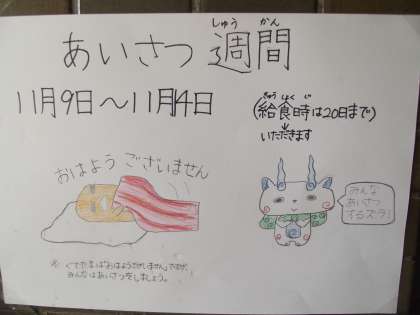 しゅう かん
あいさつ週間
11月9日～11月14日
きゅう しょく じ
(給食時は20日まで)
いただきます
おはよう ございません
みんな
あいさつ
するズラ!
※ ぐでたまは「おはようございません」ですが、
みんなはあいさつをしましょう。